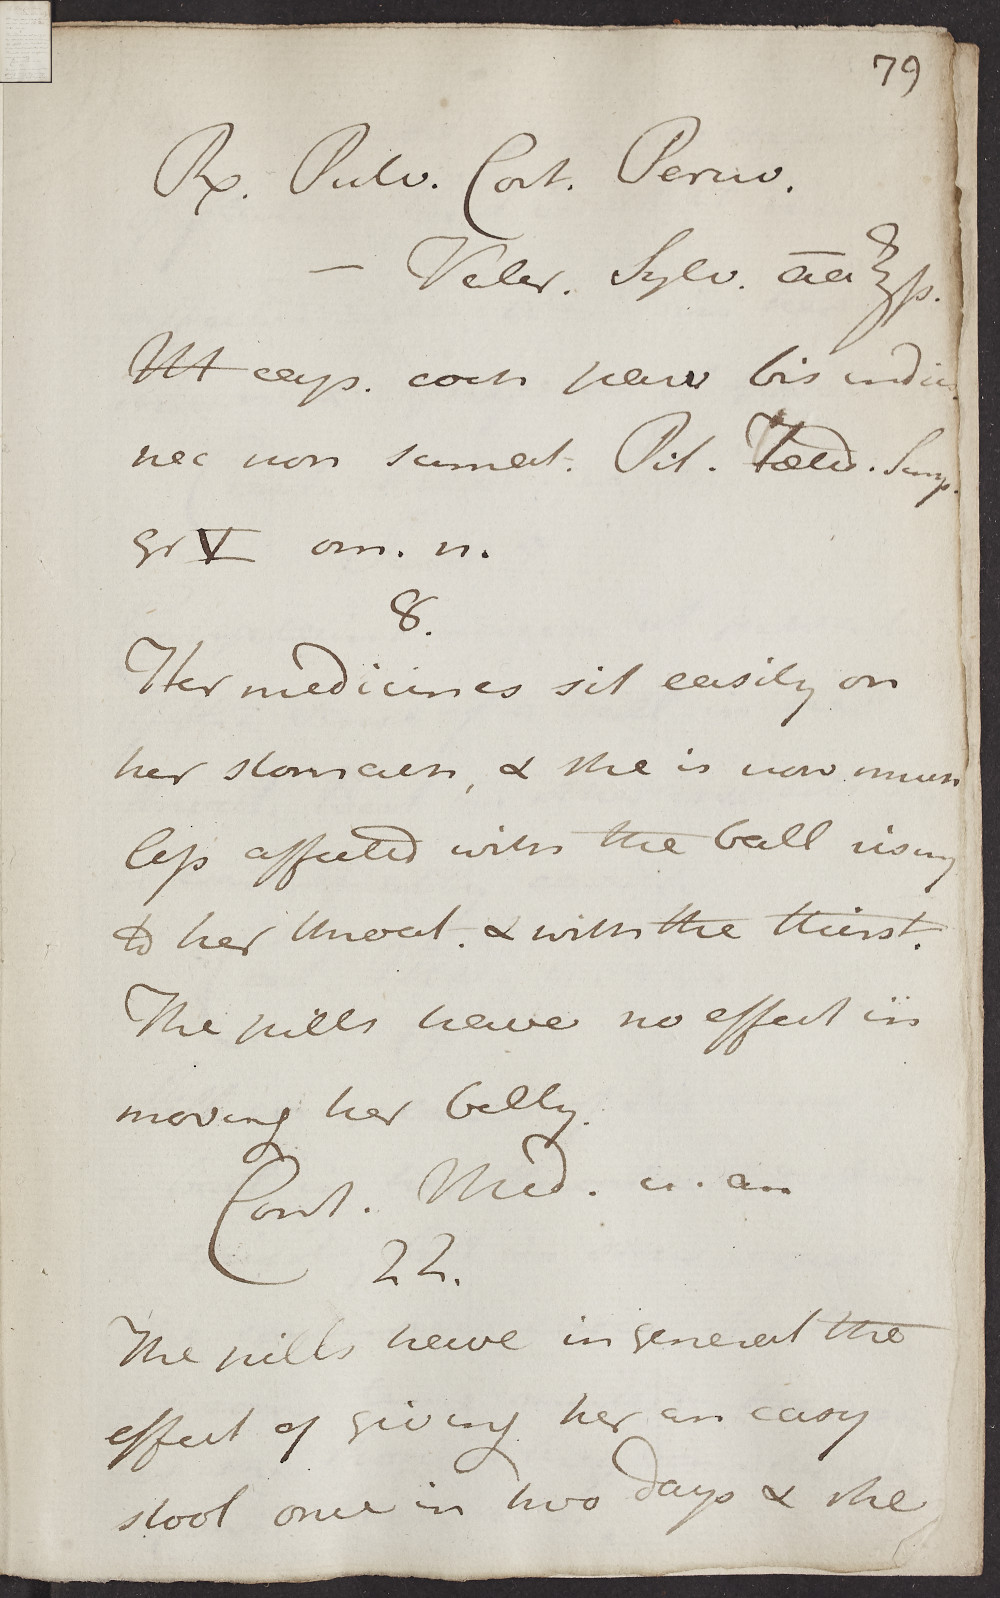 79
Rx. Pulv. Cort. Peruv.
— Valer. Sylv. āa ℥ß.
Ut cap. coch parv bis indies
nec non sumat. Pil. Fœtid. Simp.
gr V om. n.
8.
Her medicines sit easily on
her stomach, & she is now much
less affected with the ball rising
to her throat. & with the thirst.
The pills have no effect in
moving her belly.
Cont. Med. u. an
22.
The pills have in general the
effect of giving her an easy
stool once in two days & she